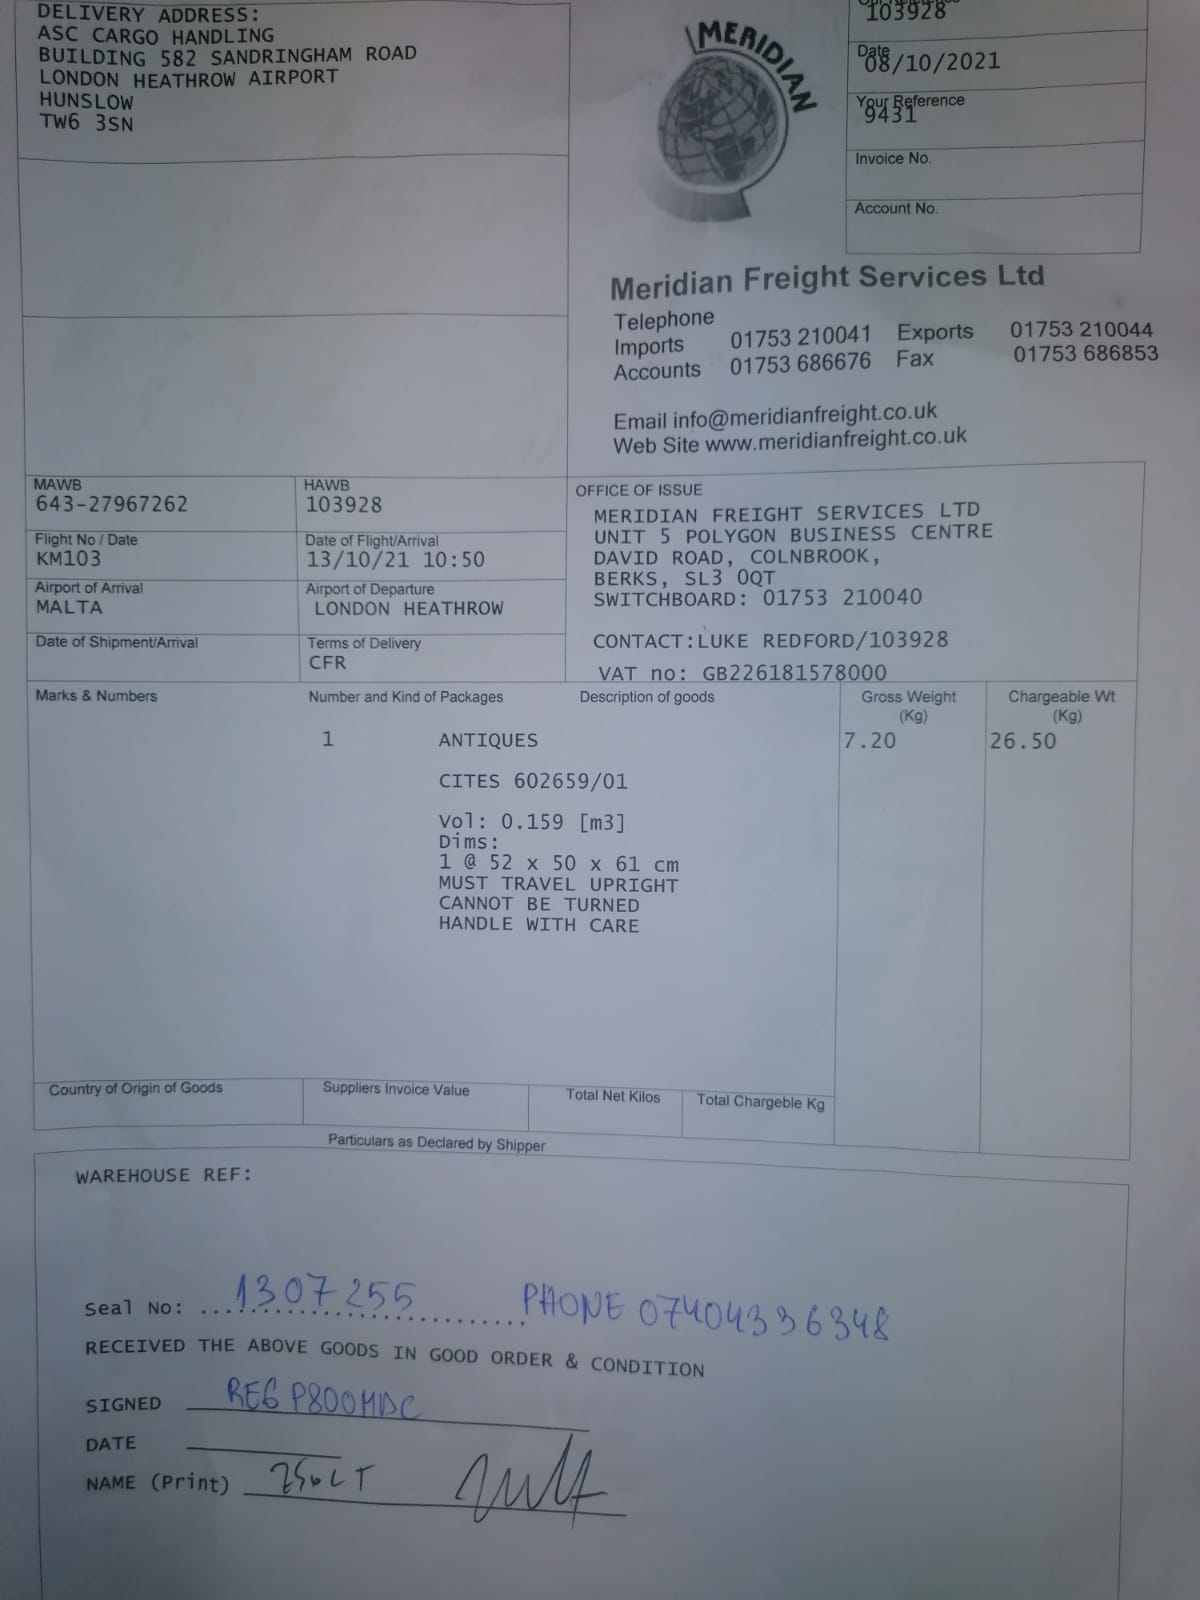 DELIVERY ADDRESS:
ASC CARGO HANDLING
BUILDING 582 SANDRINGHAM ROAD
LONDON HEATHROW AIRPORT
HUNSLOW
TW6 3SN
MERIDIAN
103928
Date
08/10/2021
Your Reference
9431
Invoice No.
Account No.
Meridian Freight Services Ltd
Telephone
Imports 01753 210041 Exports 01753 210044
Accounts 01753 686676 Fax 01753 686853
Email info@meridianfreight.co.uk
Web Site www.meridianfreight.co.uk
MAWB
643-27967262
HAWB
103928
Flight No / Date
KM103
Date of Flight/Arrival
13/10/21 10:50
Airport of Arrival
MALTA
Airport of Departure
LONDON HEATHROW
Date of Shipment/Arrival
Terms of Delivery
CFR
OFFICE OF ISSUE
MERIDIAN FREIGHT SERVICES LTD
UNIT 5 POLYGON BUSINESS CENTRE
DAVID ROAD, COLNBROOK,
BERKS, SL3 0QT
SWITCHBOARD: 01753 210040
CONTACT:LUKE REDFORD/103928
VAT no: GB226181578000
Marks & Numbers Number and Kind of Packages Description of goods Gross Weight (Kg) Chargeable Wt (Kg)
1 ANTIQUES 7.20 26.50
CITES 602659/01
Vol: 0.159 [m3]
Dims:
1 @ 52 x 50 x 61 cm
MUST TRAVEL UPRIGHT
CANNOT BE TURNED
HANDLE WITH CARE
Country of Origin of Goods Suppliers Invoice Value Total Net Kilos Total Chargeble Kg
Particulars as Declared by Shipper
WAREHOUSE REF:
Seal No: 1307255 PHONE 07404336348
RECEIVED THE ABOVE GOODS IN GOOD ORDER & CONDITION
SIGNED REG P800MDC
DATE
NAME (Print)